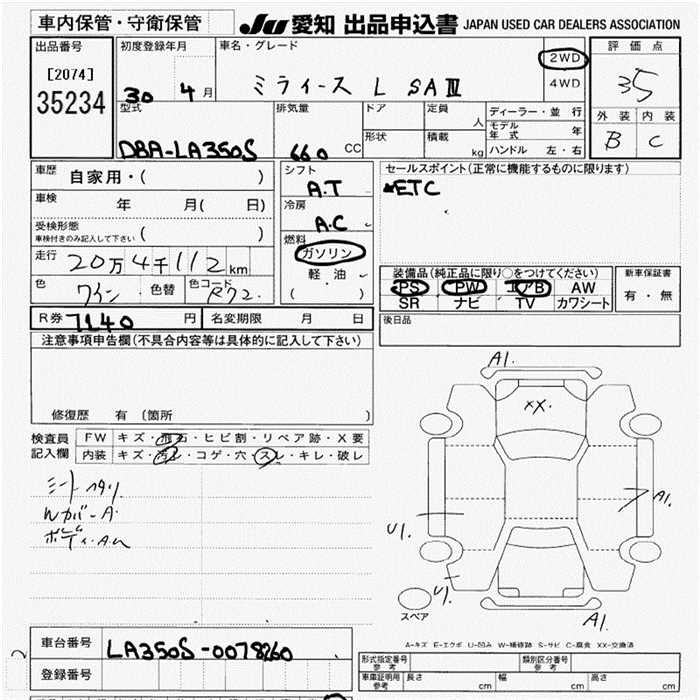 車内保管・守衛保管
JU 愛知 出品申込書 JAPAN USED CAR DEALERS ASSOCIATION
出品番号
[2074]
35234
初度登録年月
30 4 月
車名・グレード
ミライース L SAⅢ
2WD
4WD
評価点
3.5
外装 内装
B C
型式
DBA-LA350S
排気量
660 CC
ドア
形状
定員 人
積載 kg
ディーラー・並行
モデル年式 年
ハンドル 左・右
車歴 自家用・( )
車検 年 月( 日)
受検形態
車検付きのみ記入して下さい ( )
走行 20万4千112km
色 ワイン 色替 色コード R72
シフト
A.T
冷房
A.C
燃料
ガソリン
軽油
( )
セールスポイント(正常に機能するものに限ります)
ETC
装備品(純正品に限り○をつけてください)
PS PW エアB AW
SR ナビ TV カワシート
新車保証書
有・無
R券 7140 円 名変期限 月 日
後日品
注意事項申告欄(不具合内容等は具体的に記入して下さい)
修復歴 有 (箇所 )
検査員記入欄
FW キズ・飛石・ヒビ割・リペア跡・X要
内装 キズ・汚レ・コゲ・穴・スレ・キレ・破レ
シートヘタリ
Wカバ-A
ボディ・A.U
A1.
XX.
A1.
U1.
U1.
A1.
スペア
A-キズ E-エクボ U-凹み W-補修跡 S-サビ C-腐食 XX-交換済
車台番号 LA350S-0078260
登録番号
形式指定番号
参考
類別区分番号
参考
車庫証明用
参考
長さ cm 幅 cm 高さ cm